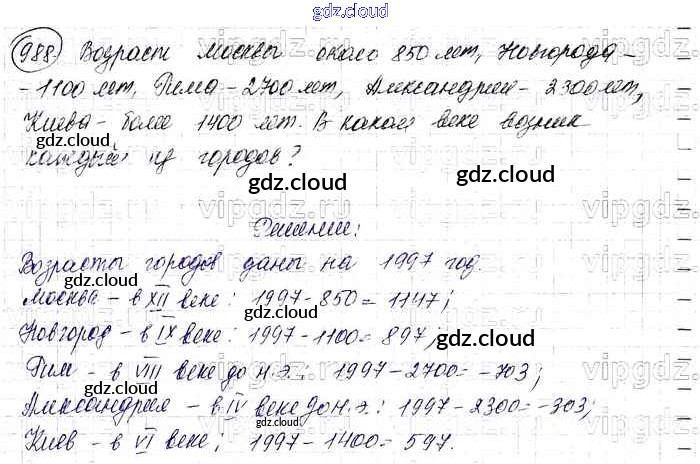 gdz.cloud
988. Возраст Москвы около 850 лет, Новгорода -
- 1100 лет, Рима - 2700 лет, Александрии - 2300 лет,
Киева - более 1400 лет. В каком веке возник
каждый из городов?
gdz.cloud
gdz.cloud
Решение:
Возрасты городов даны на 1997 год.
gdz.cloud
gdz.cloud
Москва - в XII веке: 1997-850= 1147;
Новгород - в IX веке: 1997-1100= 897;
gdz.cloud
Рим - в VIII веке до н.э.: 1997-2700= -703;
gdz.cloud
gdz.cloud
Александрия - в IV веке до н.э.: 1997-2300= -303;
Киев - в VI веке; 1997-1400= 597.
gdz.cloud